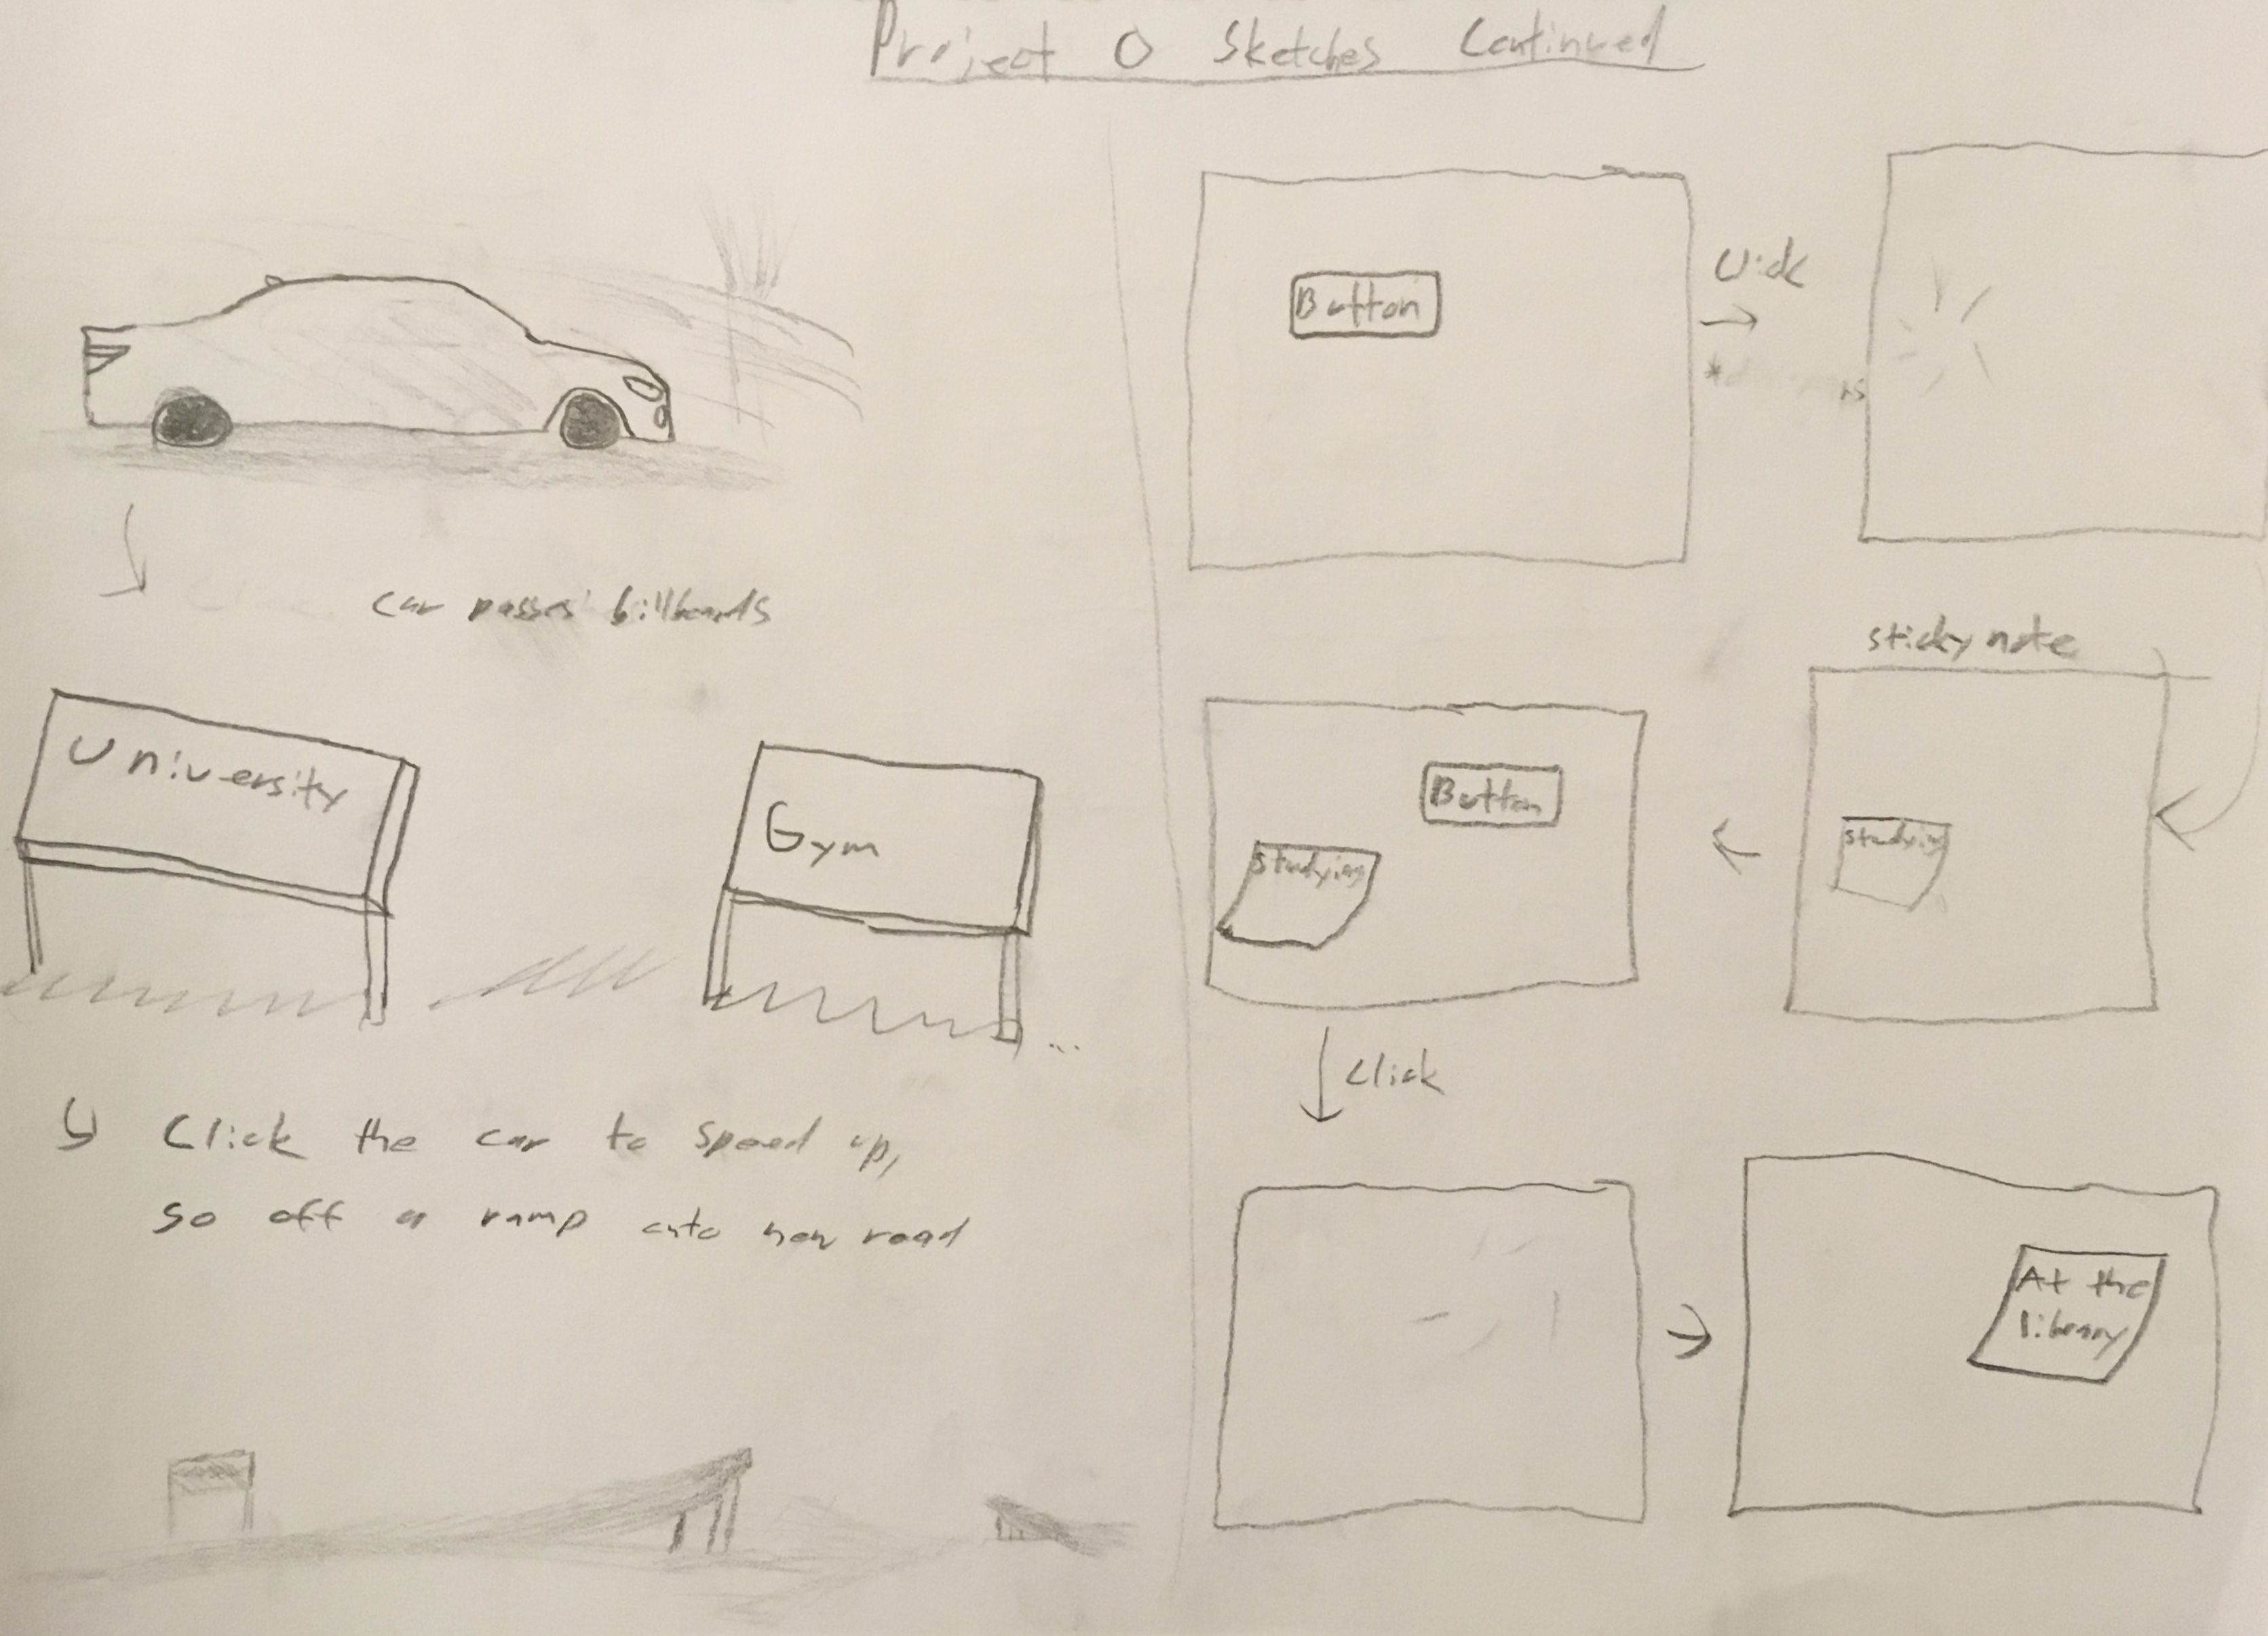 Project 0 Sketches Continued
car passes billboards
University
Gym
...
Click the car to speed up,
so off a ramp onto new road
Button
Click
sticky note
studying
Button
studying
Click
At the
library